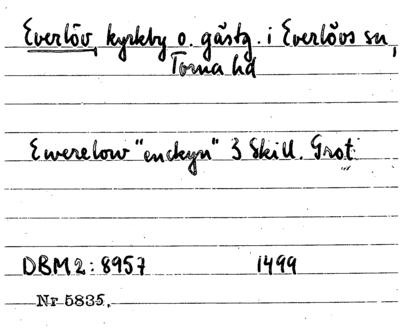 Everlöv, kyrkby o. gästg. i Everlövs sn,
Torna hd
Ewerelow "enckyn" 3 Skill. Grot.
DBM 2: 8957 1499
Nr 5835.